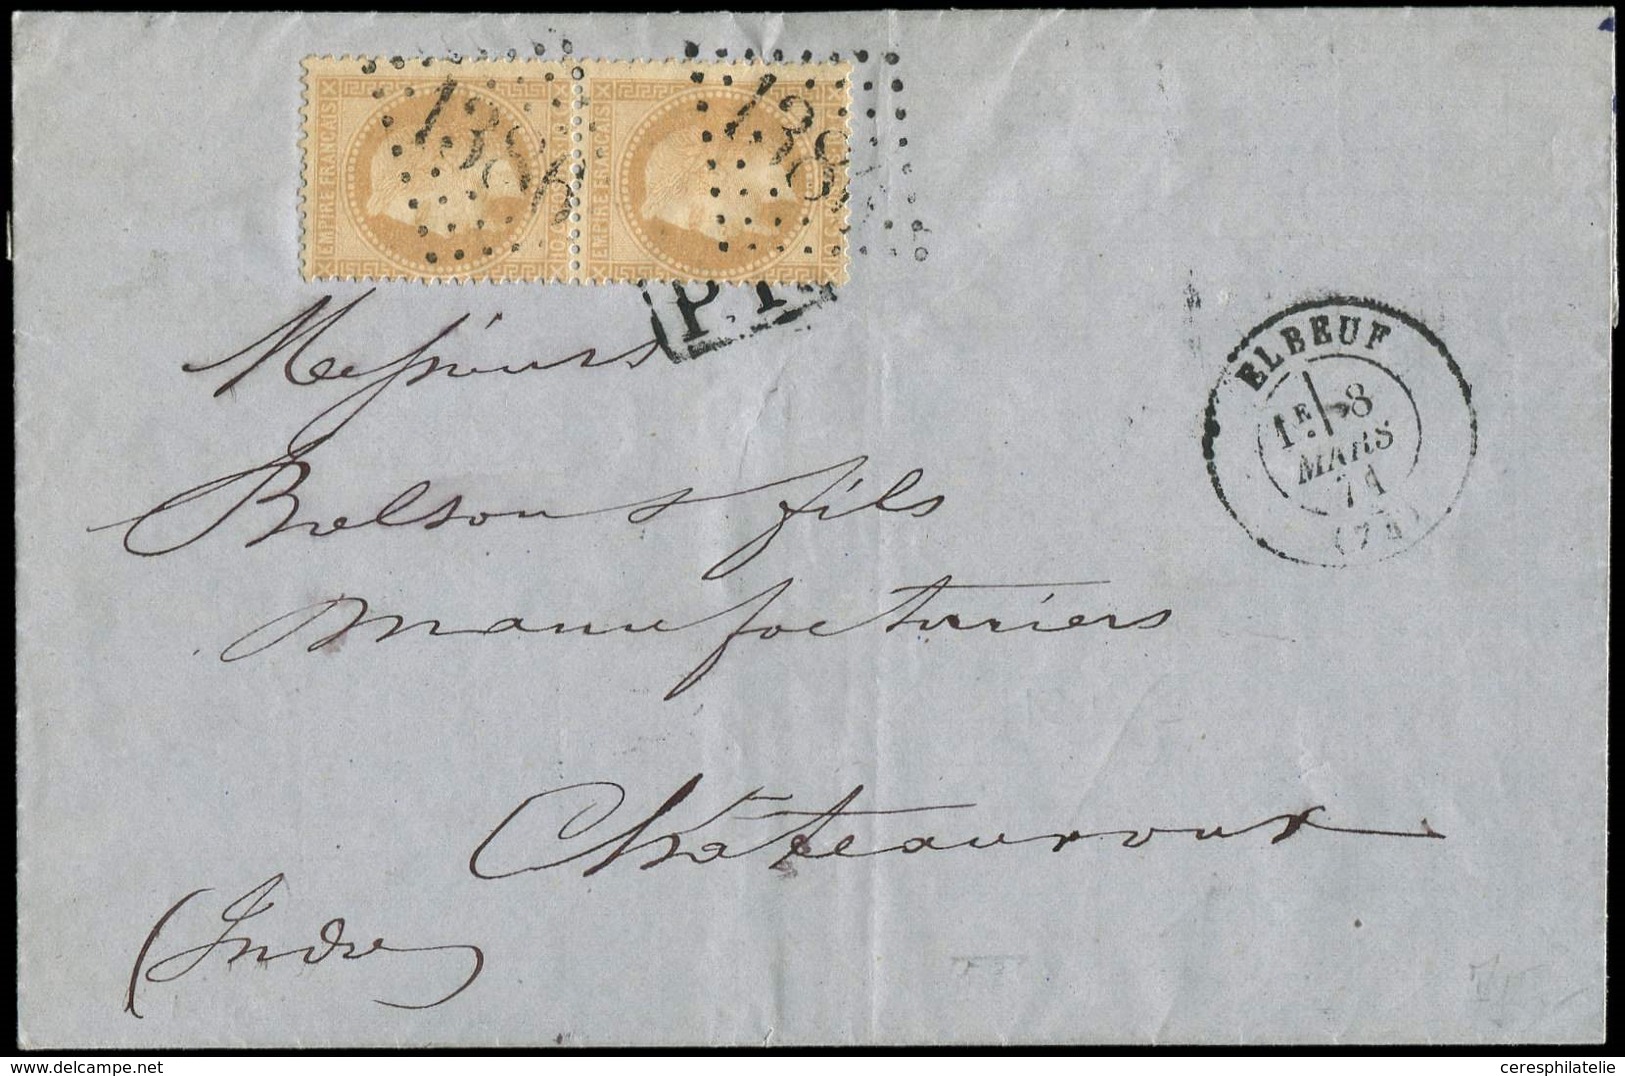 EMPIRE FRANÇAIS
EMPIRE FRANÇAIS
1386
138
P.P.
ELBEUF
1E 8
MARS
71
(74)
Messieurs
Balsan & fils
manufacturiers
Châteauroux
(Indre)
ceresphilatelie